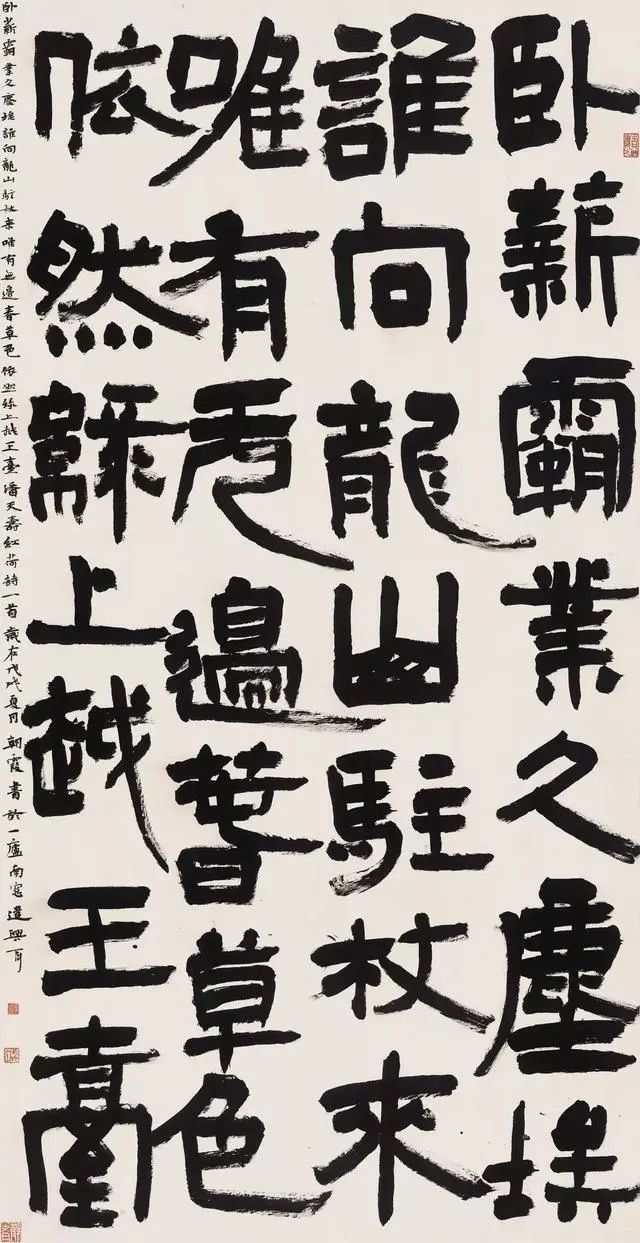 卧薪霸業久塵埃
誰向龍山駐杖來
唯有無邊春草色
依然綠上越王臺
卧薪霸業久塵埃誰向龍山駐杖來唯有無邊春草色依然綠上越王臺潘天壽紅荷詩一首歲在戊戌夏月朝霞書於一廬南窗遣興耳